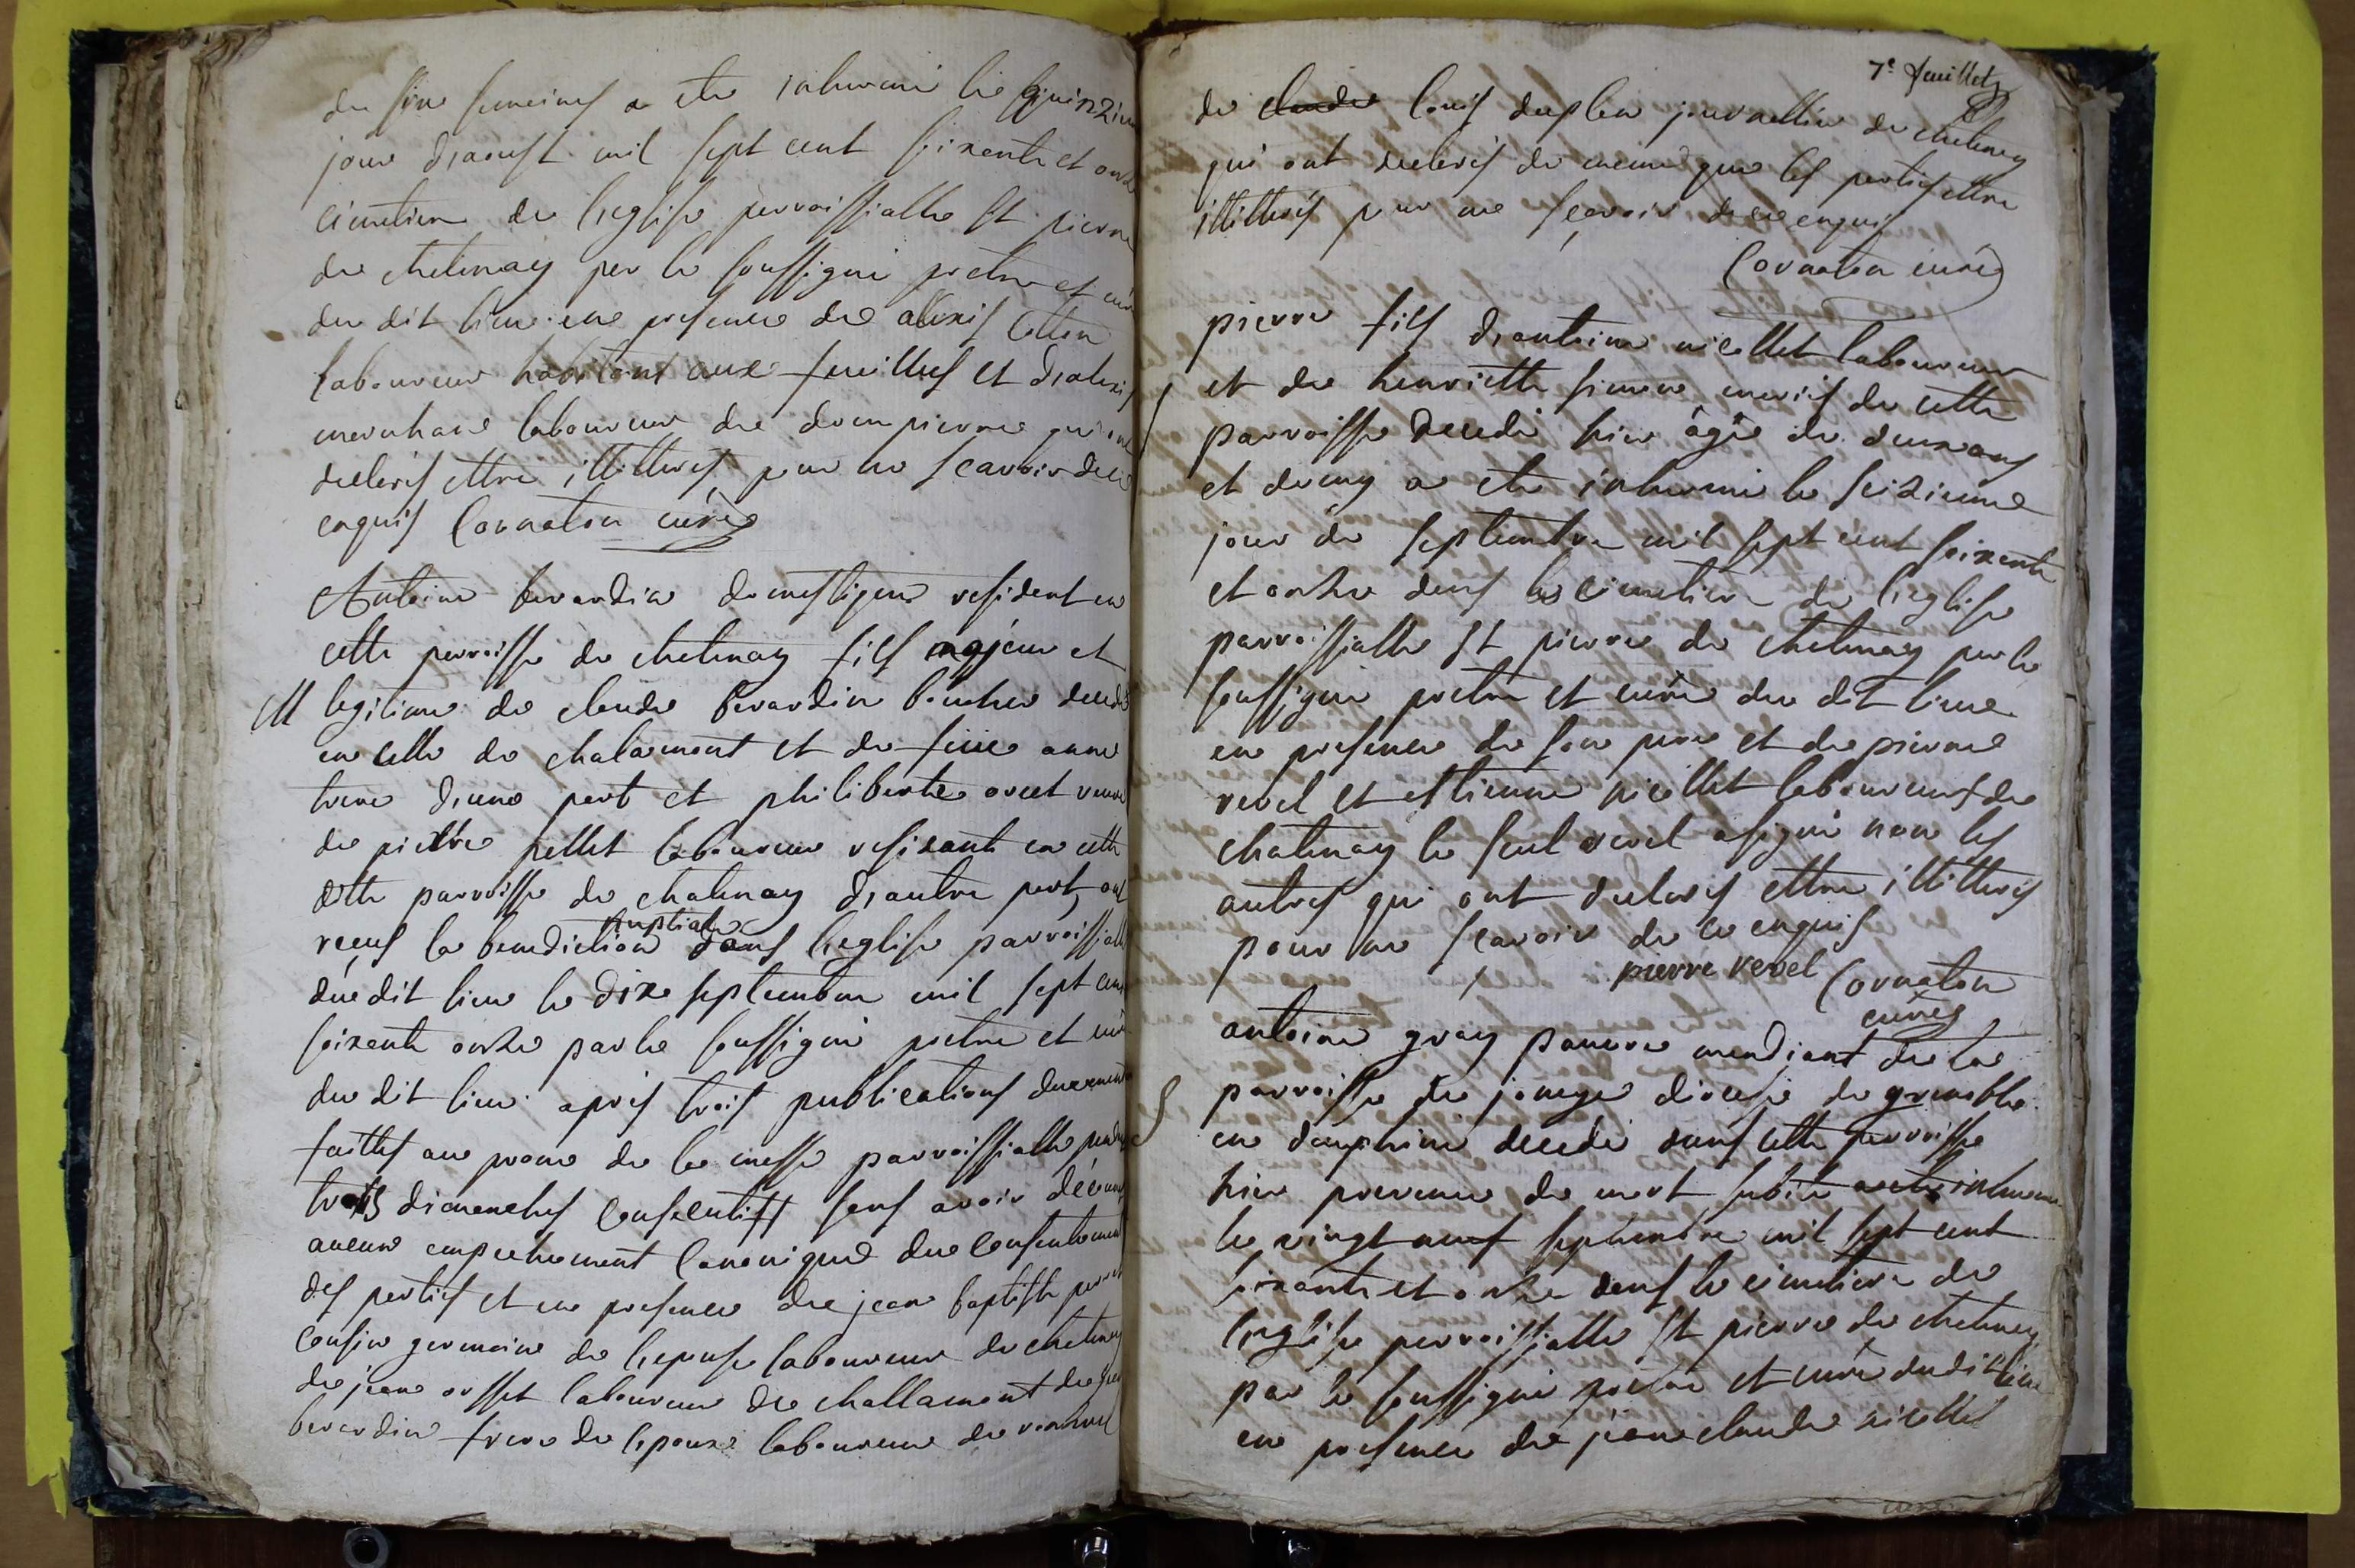 de six semaines a ete inhumé le quinzieme
jour d'aoust mil sept cent soixante et onze
cimetiere de l'eglise parroissialle st pierre
de chatenay par le soussigné pretre et curé
du dit lieu en presence de alexis
laboureur habitant aux feuilles et d'alexis
marchand laboureur de dompierre qui ont
declarés ettre illitterés pour ne scavoir de ce
enquis Cornaton curé
Antoine berardin domestique resident en
cette parroisse de chatenay fils majeur et
M legitime de claude berardin decedé
en celle de chalamont et de feüe anne
d'une part et philiberte veuve
de pierre pellet laboureur en cette
ditte parroisse de chatenay d'autre part, ont
reçus la benediction nuptiale dans l'eglise parroissialle
du dit lieu le dix septembre mil sept cent
soixante onze par le soussigné pretre et curé
du dit lieu apres trois publications duement
faittes au prone de la messe parroissialle pendant
trois dimanches consecutifs sans avoir découvert
aucun empechement canonique du consentement
des parties et en presence de jean baptiste
cousin germain de l'epouse laboureur de chatenay
de jean orsset laboureur de challamont de
berardin frere de l'epoux laboureur de
7e feuillet
de claude louis duplex journallier de chatenay
qui ont declarés de meme que les parties ettre
illitterés pour ne sçavoir de ce enquis
Cornaton curé
pierre fils d'antoine nicollet laboureur
et de henriette simon mariés de cette
S parroisse decedé hier âgé de deux ans
et demy a ete inhumé le seizieme
jour de septembre mil sept cent soixante
et onze dans le cimetiere de l'eglise
parroissialle st pierre de chatenay par le
soussigné pretre et curé du dit lieu
en presence de son pere et de pierre
revel et ettienne nicollet laboureurs de
chatenay le seul revel a signé non les
autres qui ont declarés ettre illitterés
pour ne scavoir de ce enquis
pierre revel Cornaton
curé
antoine gray pauvre mendiant de la
S parroisse de diocese de grenoble
en dauphiné decedé dans cette parroisse
hier prevenu de mort subite a ete inhumé
le vingt neuf septembre mil sept cent
soixante et onze dans le cimetiere de
l'eglise parroissialle st pierre de chatenay
par le soussigné pretre et curé du dit lieu
en presence de jean claude nicollet